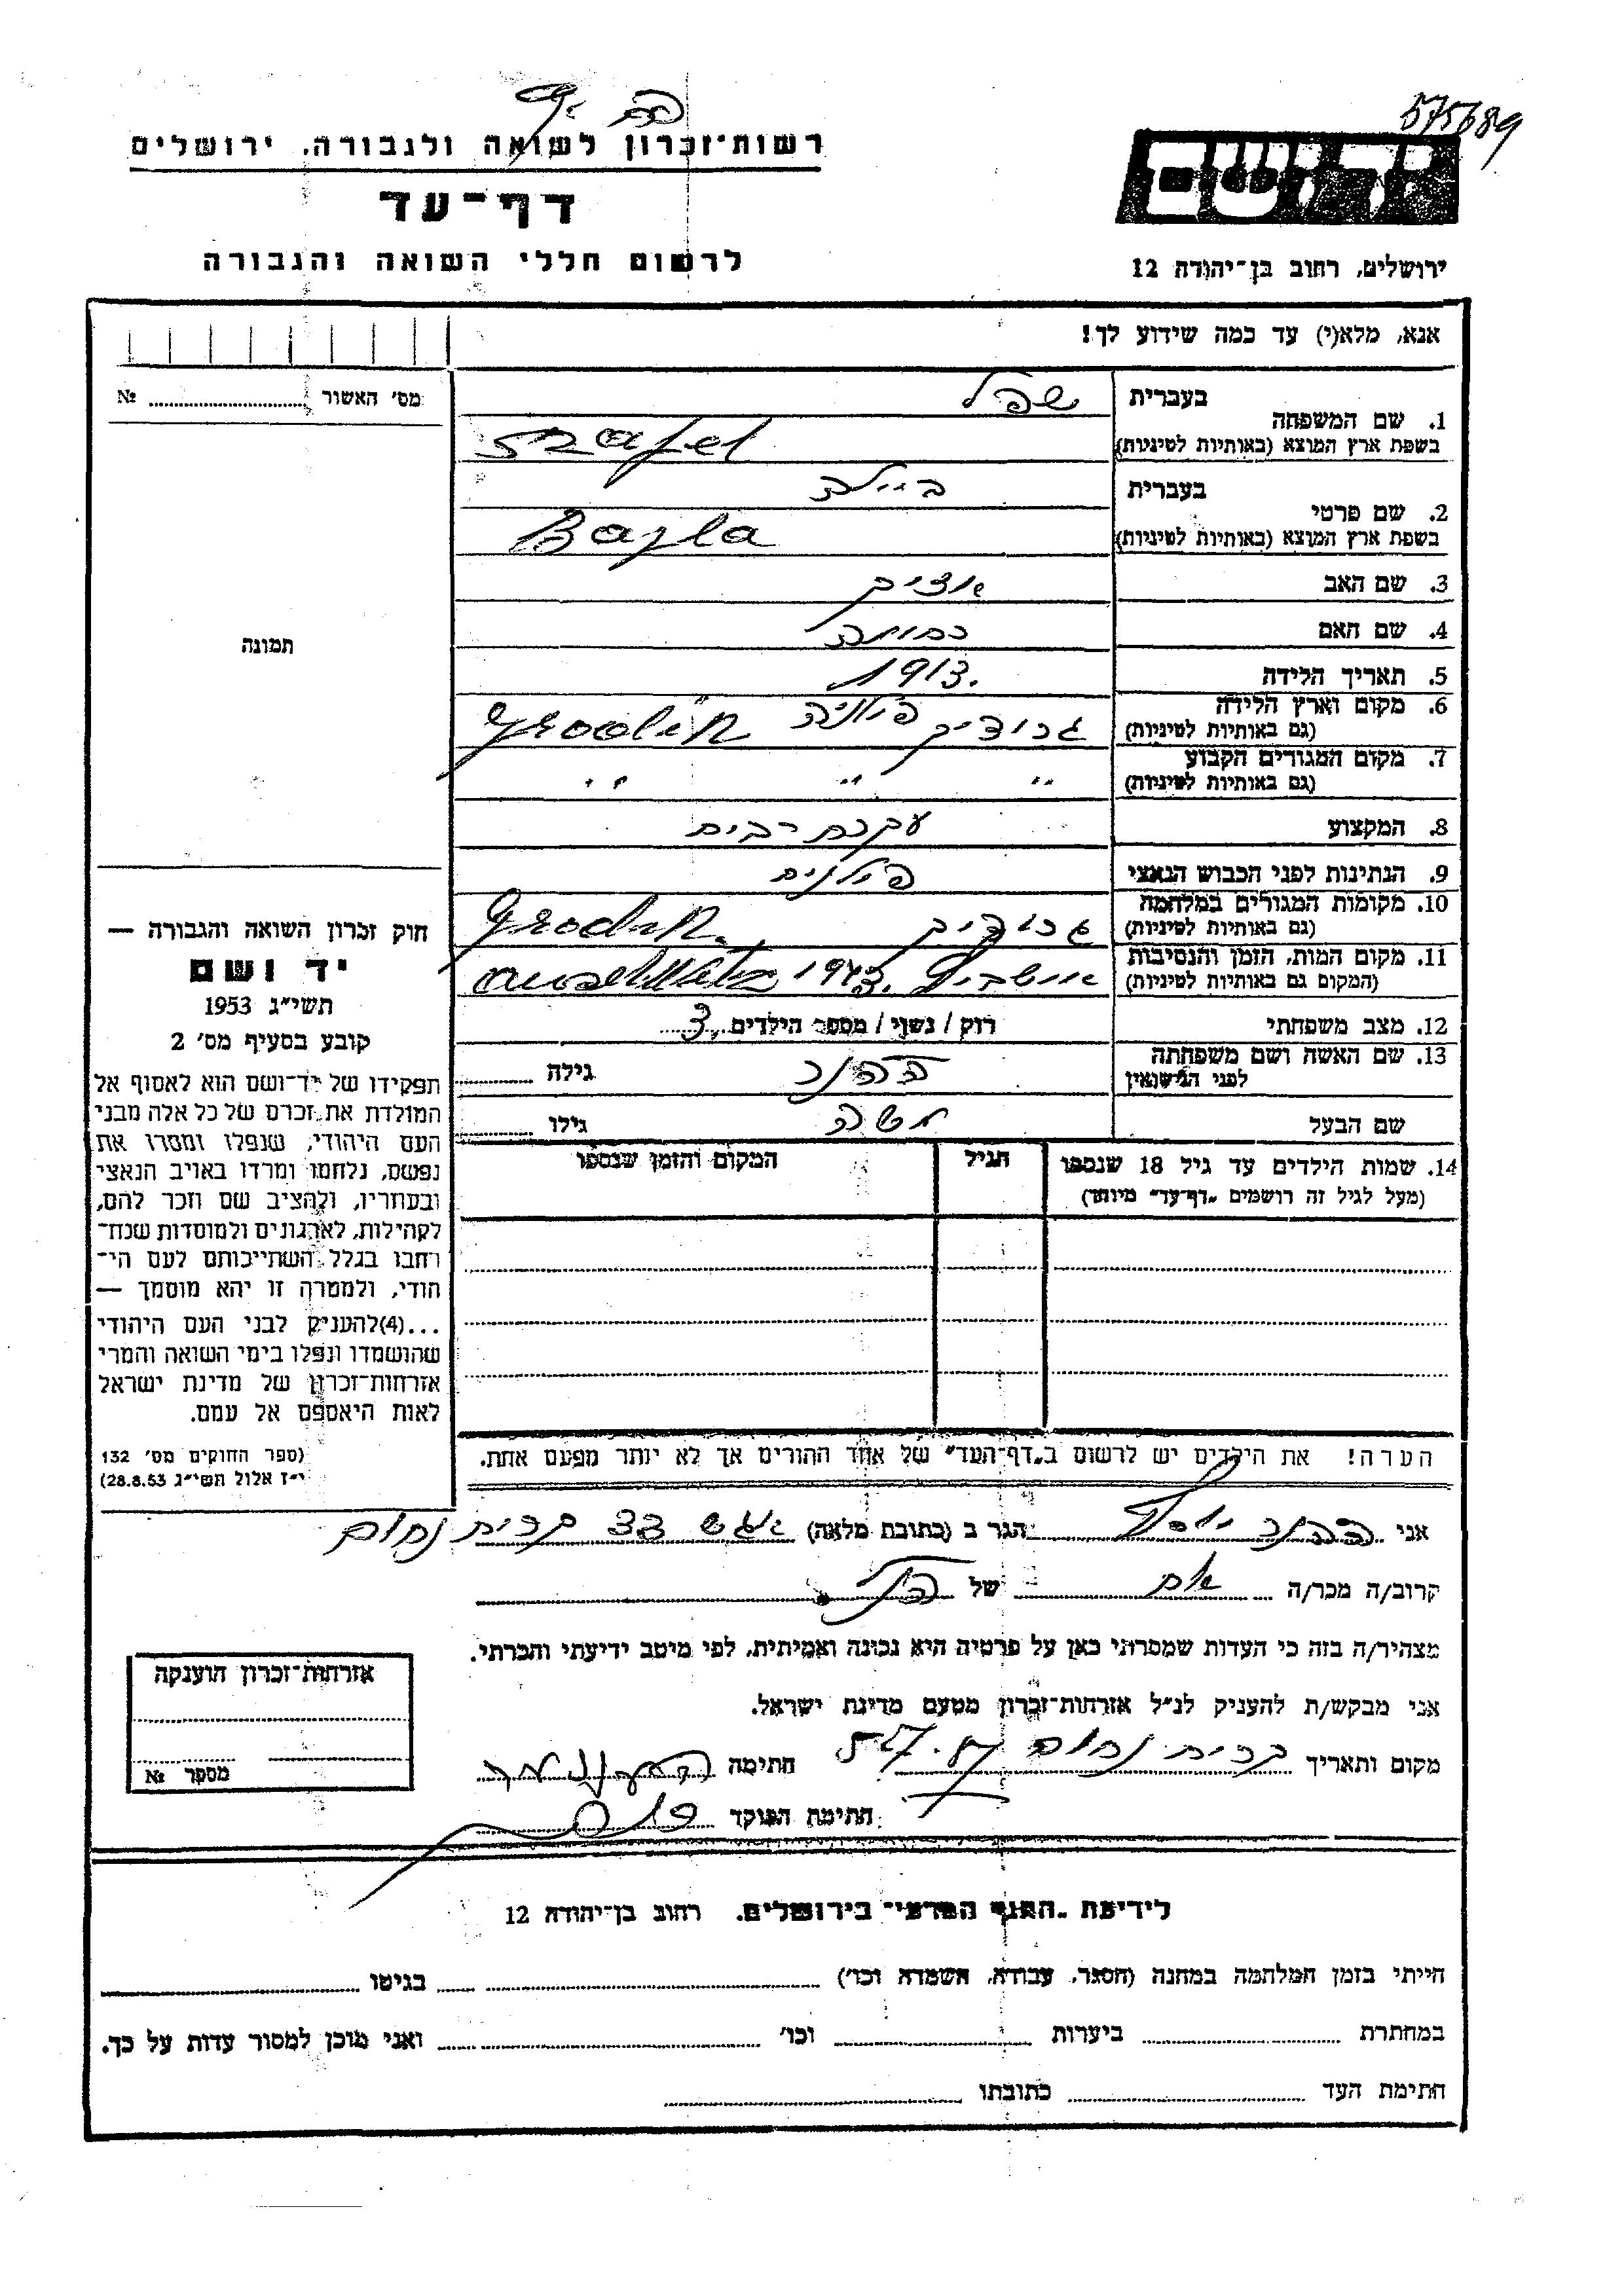 575689
רשות־זכרון לשואה ולגבורה, ירושלים
יד ושם
דף־עד
לרשום חללי השואה והגבורה
ירושלים, רחוב בן־יהודה 12
אנא, מלא(י) עד כמה שידוע לך!
מס' האשור № 
בעברית שפל
1. שם המשפחה
בשפת ארץ המוצא (באותיות לטיניות) Szafel
בעברית ביילה
2. שם פרטי
בשפת ארץ המוצא (באותיות לטיניות) Bajla
3. שם האב
4. שם האם
תמונה
5. תאריך הלידה 1913.
6. מקום וארץ הלידה
(גם באותיות לטיניות) פולניה Grodzin
7. מקום המגורים הקבוע
(גם באותיות לטיניות) " " "
8. המקצוע עקרת בית
9. הנתינות לפני הכבוש הנאצי
10. מקומות המגורים במלחמה
(גם באותיות לטיניות)
11. מקום המות, הזמן והנסיבות
(המקום גם באותיות לטיניות) אושביץ 1943.
12. מצב משפחתי רוק / נשוי / מספר הילדים 3
13. שם האשה ושם משפחתה
לפני הנישואין גילה
שם הבעל משה גילו
14. שמות הילדים עד גיל 18 שנספו הגיל המקום והזמן שנספו
(מעל לגיל זה רושמים "דף־עד" מיוחד)
חוק זכרון השואה והגבורה —
יד ושם
תשי"ג 1953
קובע בסעיף מס' 2
תפקידו של יד־ושם הוא לאסוף אל
המולדת את זכרם של כל אלה מבני
העם היהודי, שנפלו ומסרו את
נפשם, נלחמו ומרדו באויב הנאצי
ובעוזריו, ולהציב שם וזכר להם,
לקהילות, לארגונים ולמוסדות שנח־
רחבו בגלל השתייכותם לעם הי־
הודי, ולמטרה זו יהא מוסמך —
...(4)להעניק לבני העם היהודי
שהושמדו ונפלו בימי השואה והמרי
אזרחות־זכרון של מדינת ישראל
לאות היאספם אל עמם.
(ספר החוקים מס' 132
י"ז אלול תשי"ג 28.8.53)
הערה! את הילדים יש לרשום ב"דף־העד" של אחד ההורים אך לא יותר מפעם אחת.
אני הגר ב (כתובת מלאה) קרית נחום
קרוב/ה מכר/ה של
מצהיר/ה בזה כי העדות שמסרתי כאן על פרטיה היא נכונה ואמיתית, לפי מיטב ידיעתי והכרתי.
אני מבקש/ת להעניק לנ"ל אזרחות־זכרון מטעם מדינת ישראל.
מקום ותאריך קרית נחום חתימה
חתימת הפוקד
אזרחות־זכרון הוענקה
מספר №
לידיעת "הגנזך המרכזי" בירושלים, רחוב בן־יהודה 12
הייתי בזמן המלחמה במחנה (הסגר, עבודה, השמדה וכו') בגיטו
במחתרת ביערות וכו' ואני מוכן למסור עדות על כך.
חתימת העד כתובתו